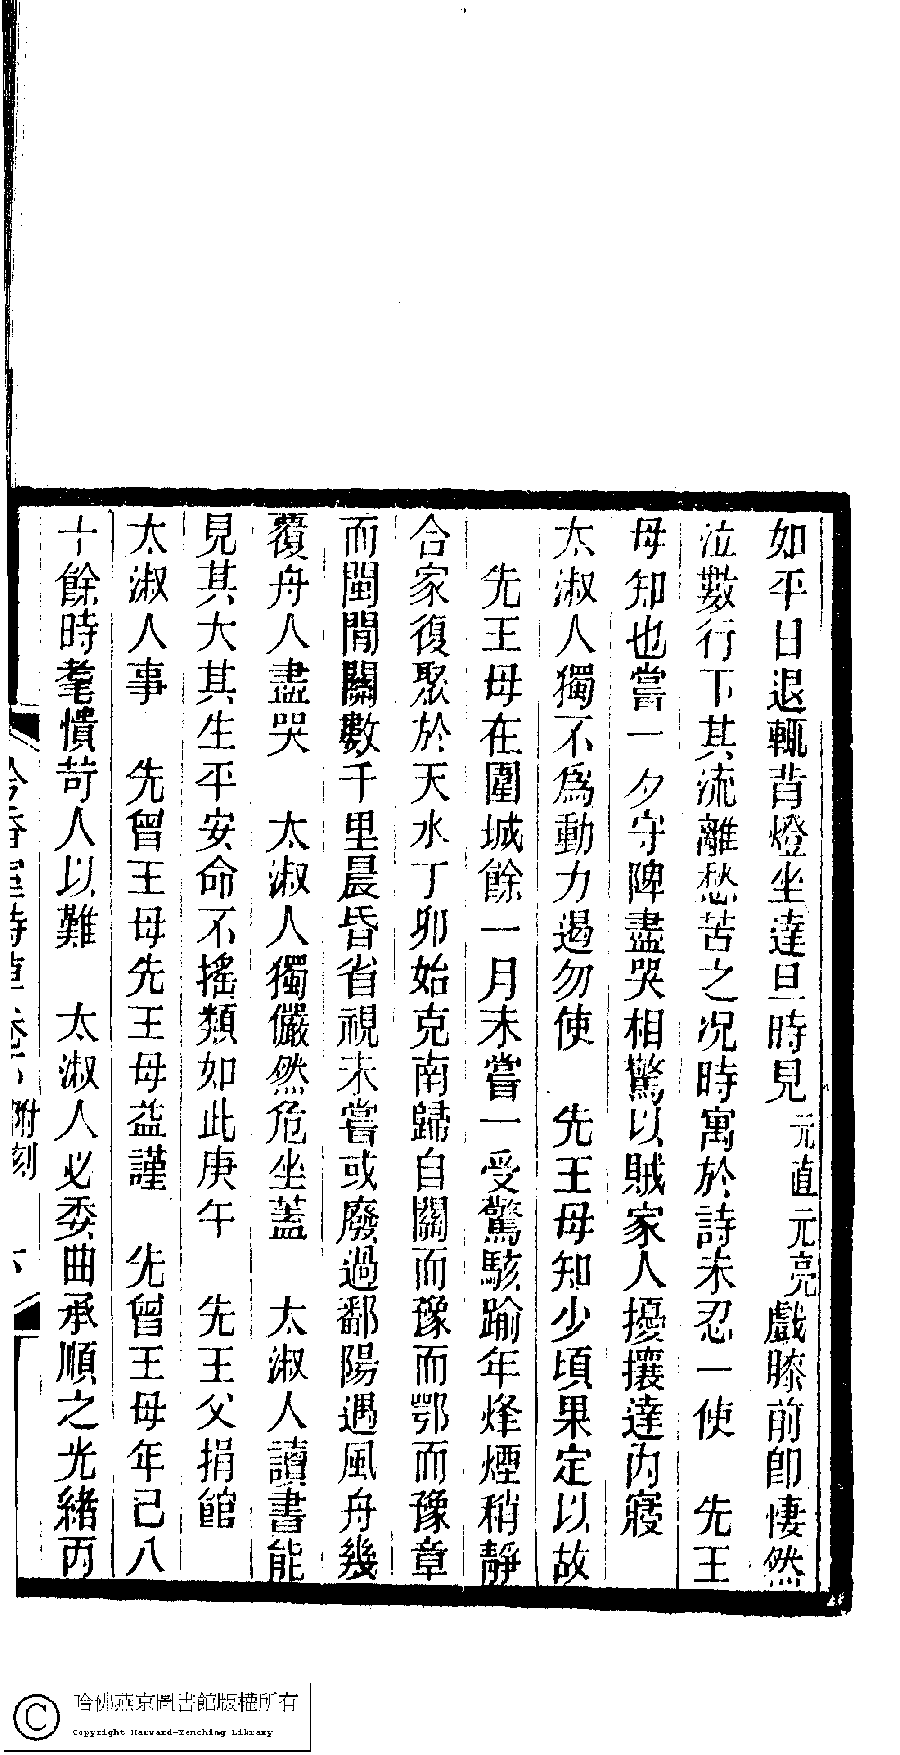 如平日退輒背燈坐達旦時見元直元亮戲膝前卽悽然
泣數行下其流離愁苦之况時寓於詩未忍一使　先王
母知也嘗一夕守陴盡哭相驚以賊家人擾攘達內寢
太淑人獨不爲動力遏勿使　先王母知少頃果定以故
　先王母在圍城餘一月未嘗一受驚駭踰年烽煙稍靜
合家復聚於天水丁卯始克南歸自關而豫而鄂而豫章
而閩閒關數千里晨昏省視未嘗或廢過鄱陽遇風舟幾
覆舟人盡哭　太淑人獨儼然危坐蓋　太淑人讀書能
見其大其生平安命不搖類如此庚午　先王父捐館
太淑人事　先曾王母先王母益謹　先曾王母年已八
十餘時耄憒苛人以難　太淑人必委曲承順之光緒丙
附刻
哈佛燕京圖書館版權所有
Copyright Harvard-Yenching Library